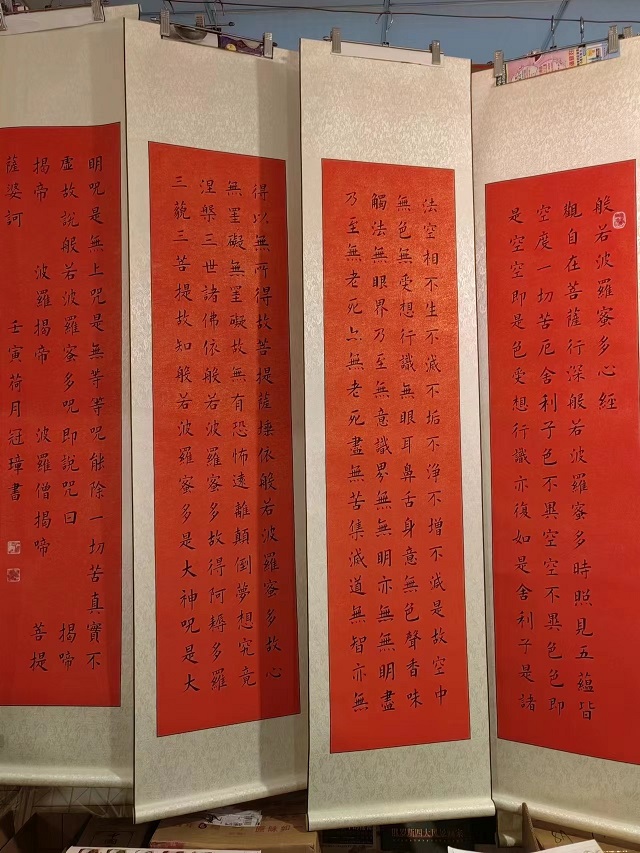 般若波羅蜜多心經
觀自在菩薩行深般若波羅蜜多時照見五蘊皆
空度一切苦厄舍利子色不異空空不異色色即
是空空即是色受想行識亦復如是舍利子是諸
法空相不生不滅不垢不净不增不減是故空中
無色無受想行識無眼耳鼻舌身意無色聲香味
觸法無眼界乃至無意識界無無明亦無無明盡
乃至無老死亦無老死盡無苦集滅道無智亦無
得以無所得故菩提薩埵依般若波羅蜜多故心
無罣礙無罣礙故無有恐怖遠離顛倒夢想究竟
涅槃三世諸佛依般若波羅蜜多故得阿耨多羅
三藐三菩提故知般若波羅蜜多是大神咒是大
明咒是無上咒是無等等咒能除一切苦真實不
虛故說般若波羅蜜多咒即說咒曰 揭啼
揭帝 波羅揭帝 波羅僧揭啼 菩提
薩婆訶 壬寅荷月冠璋書